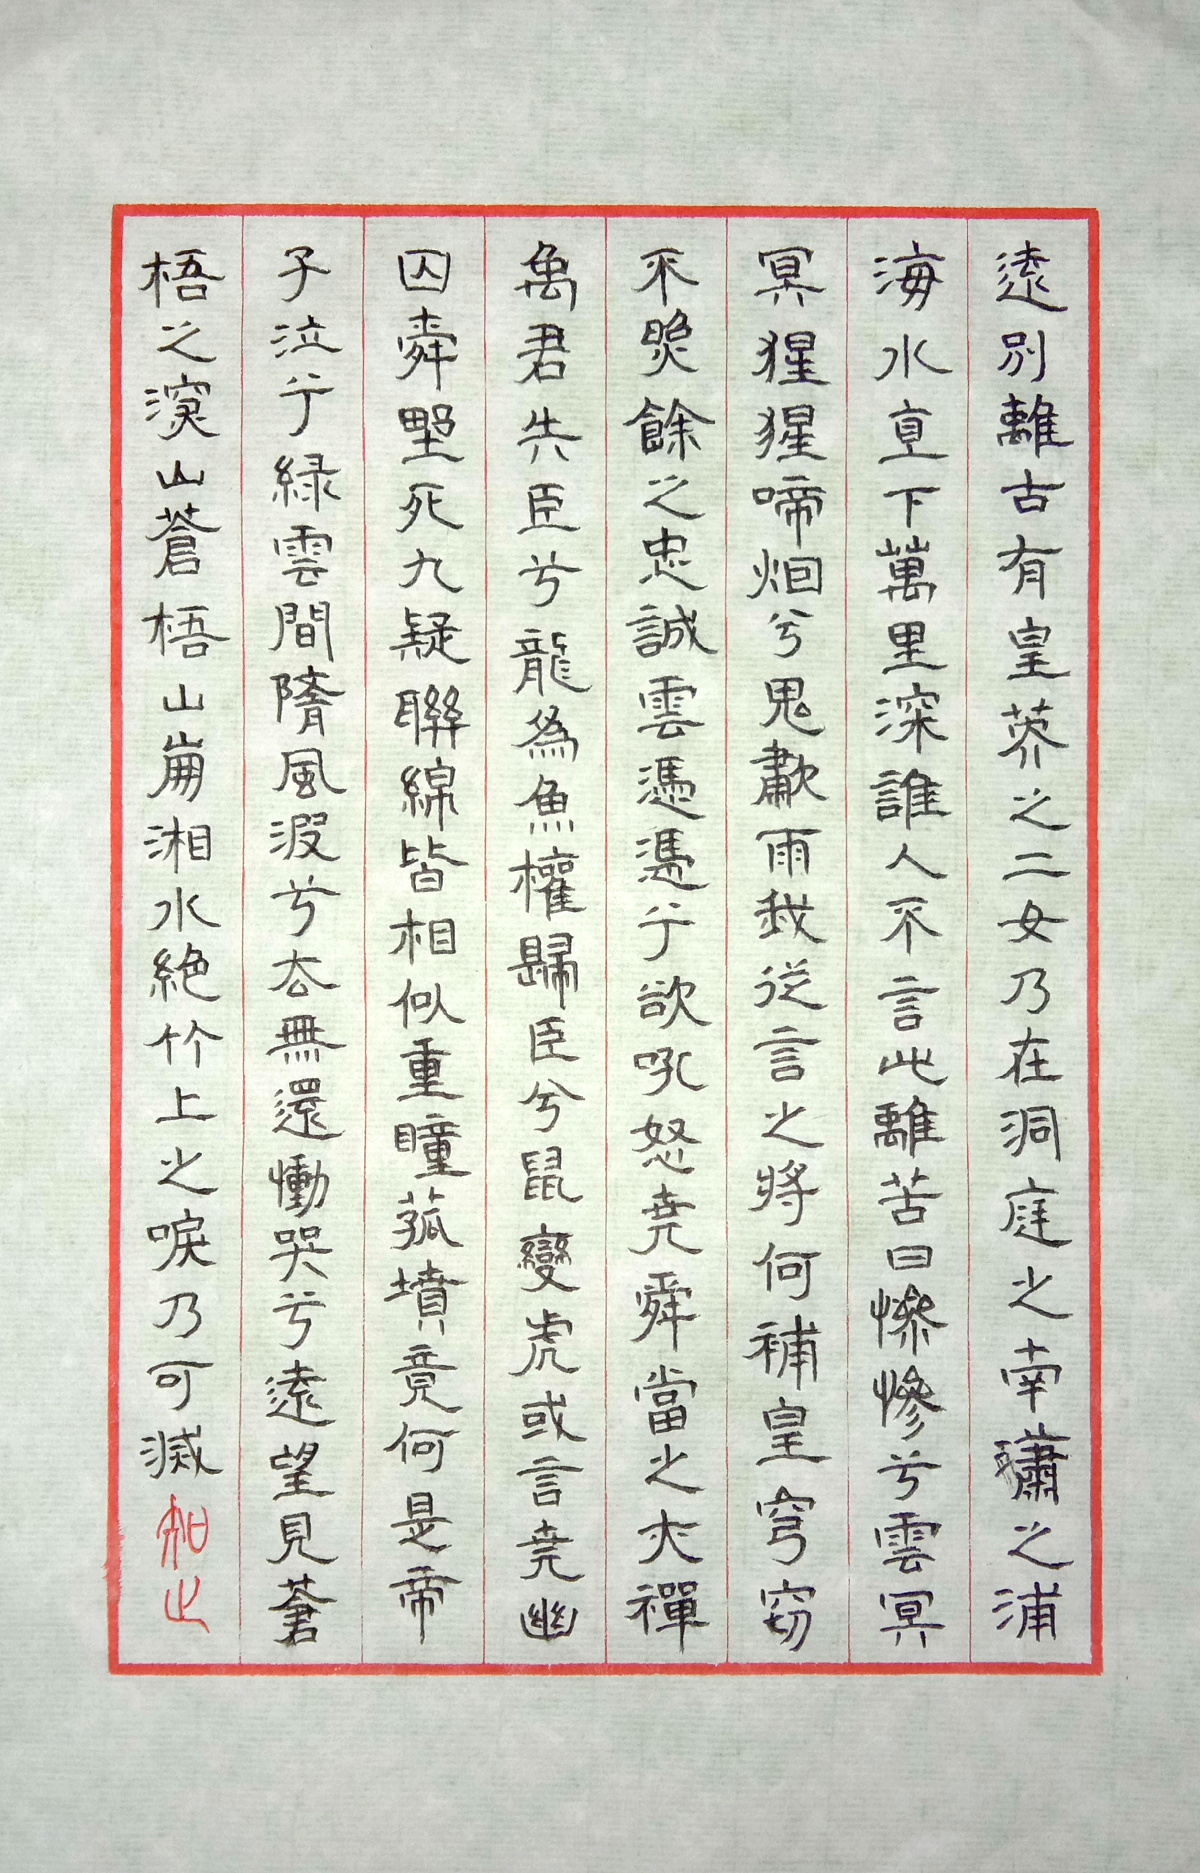 遠別離古有皇英之二女乃在洞庭之南瀟之浦
海水直下萬里深誰人不言此離苦日慘慘兮雲冥
冥猩猩啼烟兮鬼歗雨我從言之將何補皇穹窃
不照餘之忠誠雲憑憑兮欲吼怒堯舜當之亦禪
禹君失臣兮龍為魚權歸臣兮鼠變虎或言堯幽
囚舜野死九疑聯綿皆相似重瞳孤墳竟何是帝
子泣兮綠雲間隋風波兮去無還慟哭兮遠望見蒼
梧之深山蒼梧山崩湘水絶竹上之淚乃可滅